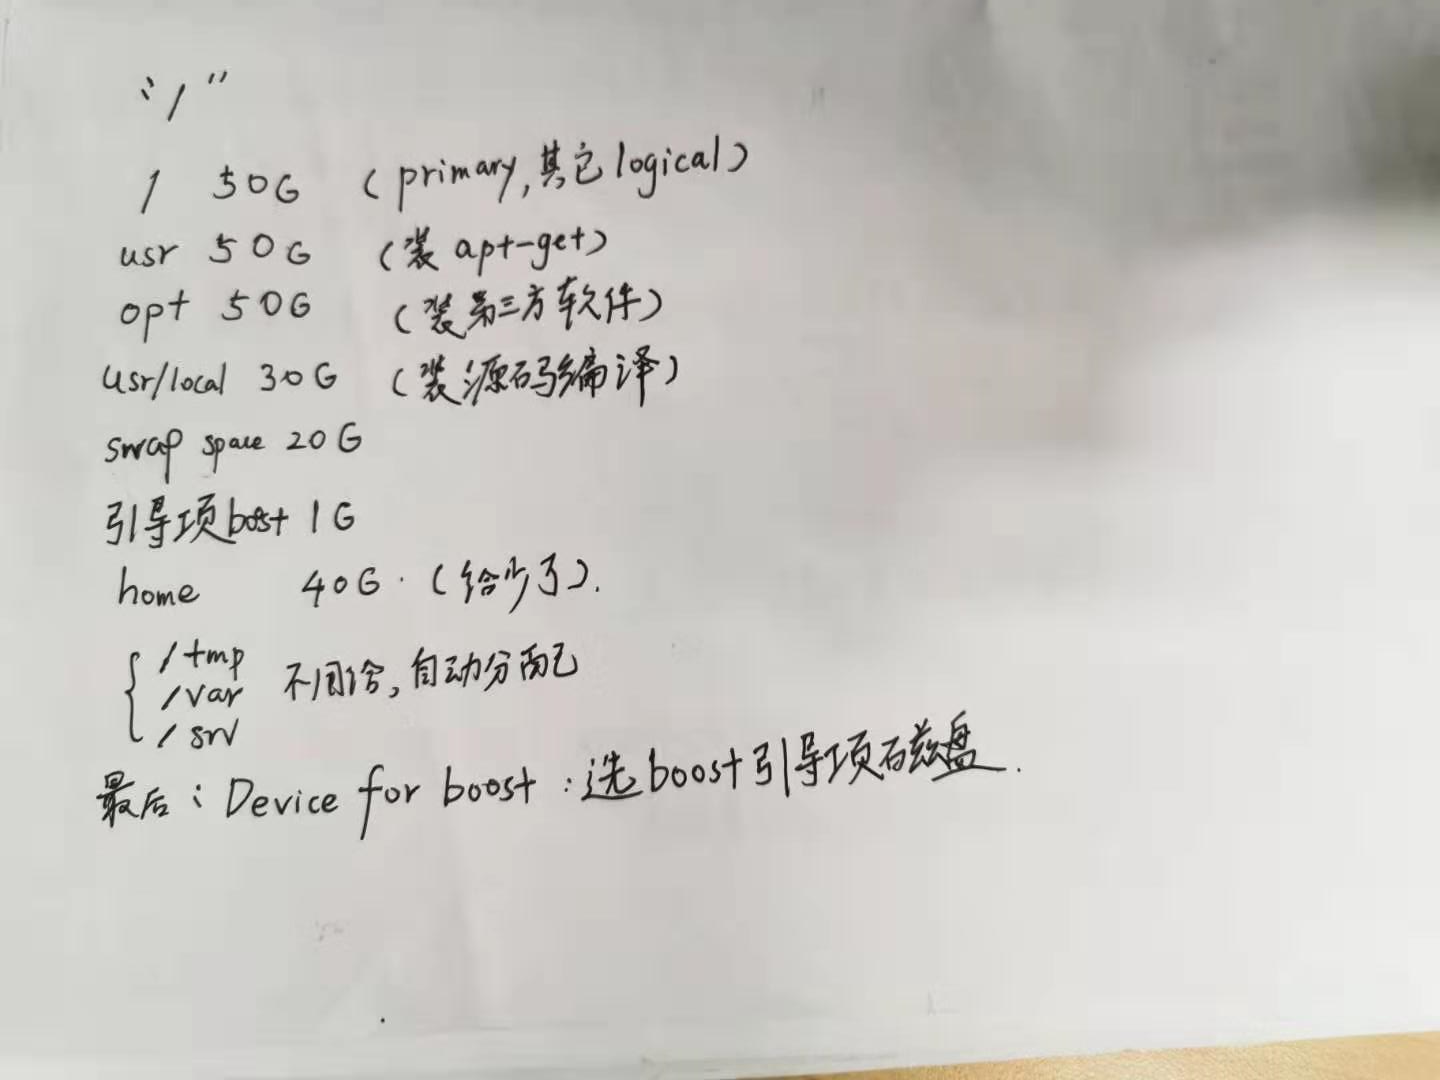 "/"
/ 50G (primary,其它logical)
usr 50G (装apt-get)
opt 50G (装第三方软件)
usr/local 30G (装源码编译)
swap space 20G
引导项boost 1G
home 40G.(给少了).
/tmp
/var 不用给,自动分配
/srv
最后:Device for boost:选boost引导项磁盘.